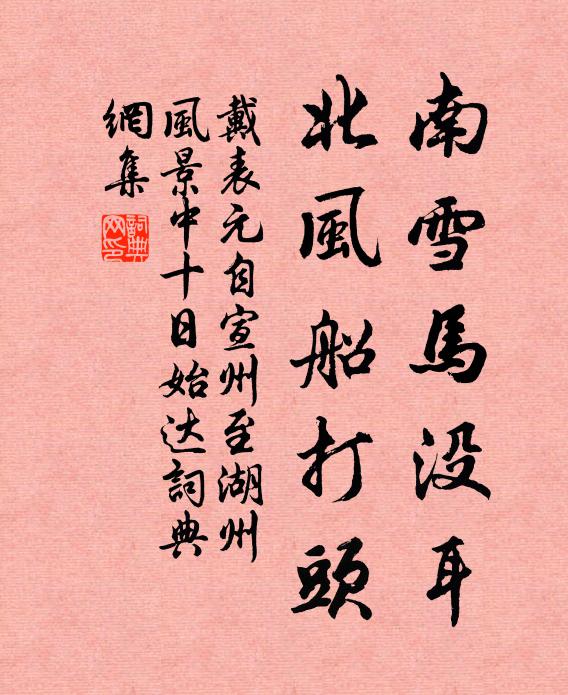 南雪馬没耳
北風船打頭
戴表元自宣州至湖州
風景中十日始达詞典
網集
詞典网印